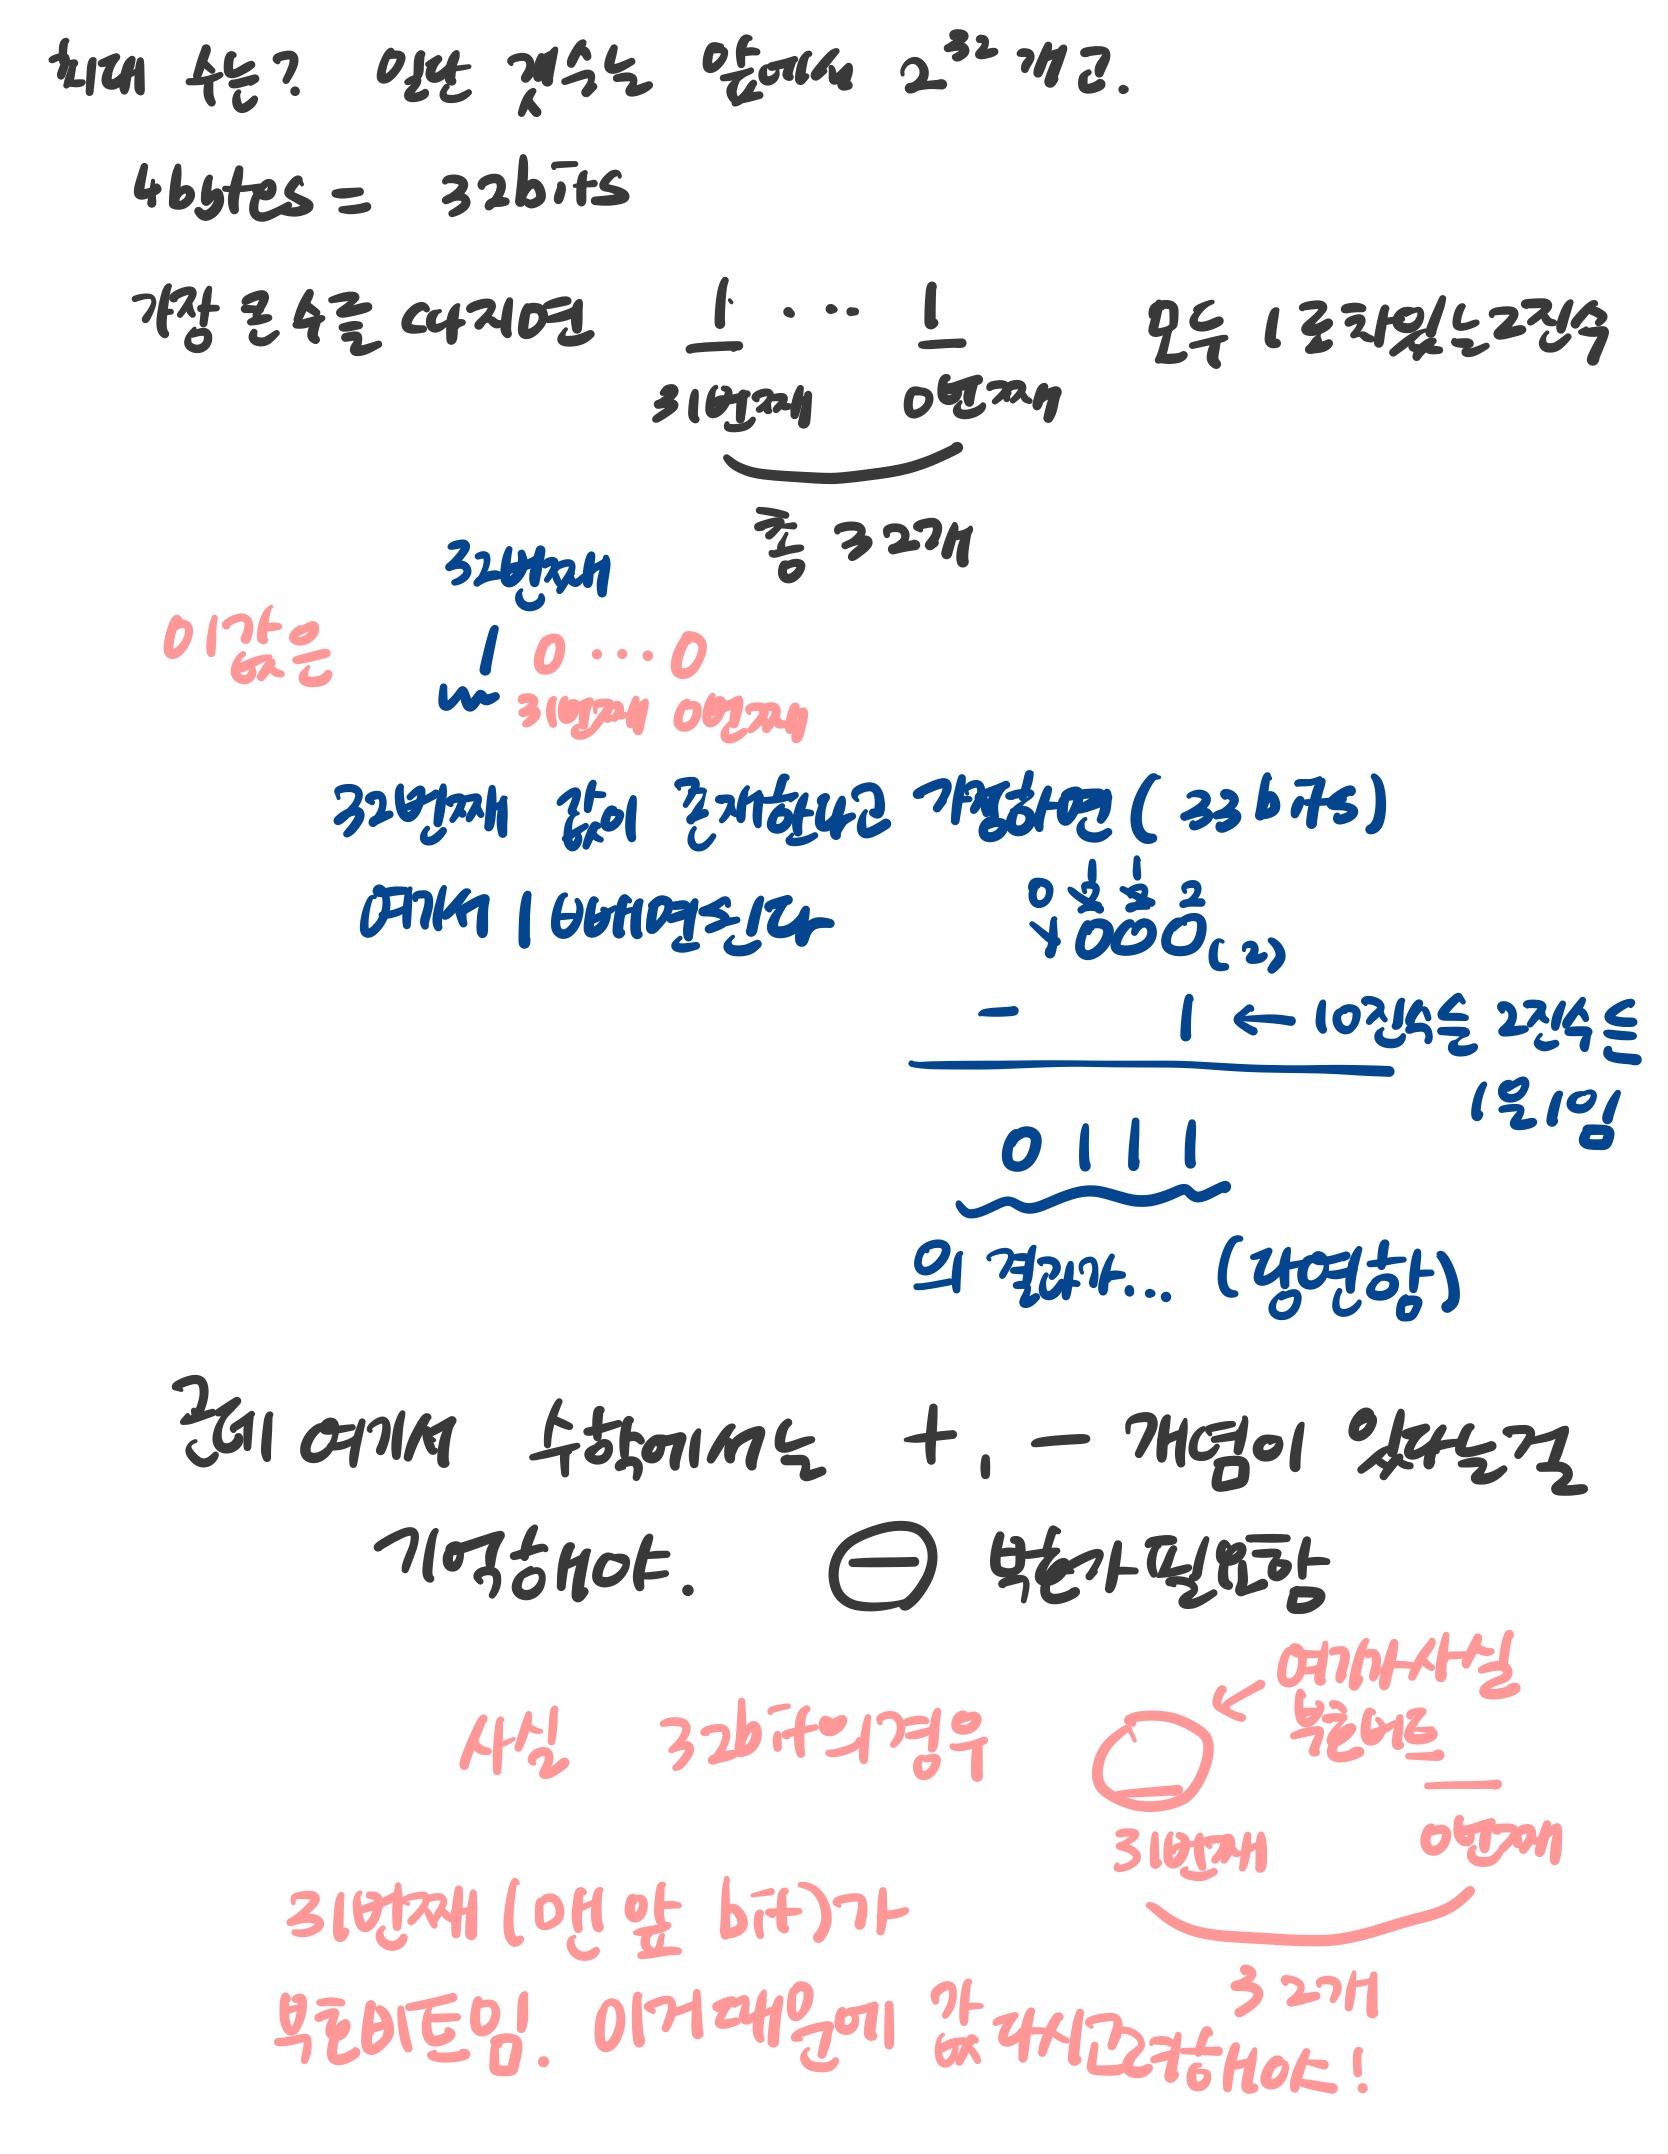 최대 수는? 일단 갯수는 앞에서 2^32개고.
4bytes = 32bits
가장 큰 수를 따지면 1 . . . 1 모두 1로 차있는 2진수
31번째 0번째
총 32개
32번째
이 값은 1 0 . . . 0
31번째 0번째
32번째 값이 존재한다고 가정하면 (33bits)
여기서 1 빼면 된다
0 1 1 2
1000(2)
- 1 ← 10진수든 2진수든
1은 1임
0 1 1 1
의 결과가... (당연함)
근데 여기서 수학에서는 +, - 개념이 있다는걸
기억해야. - 부호가 필요함
여기가 사실
사실 32bit의 경우
31번째 0번째
31번째 (맨 앞 bit)가
32개
부호비트임. 이거때문에 값 다시 고려해야!